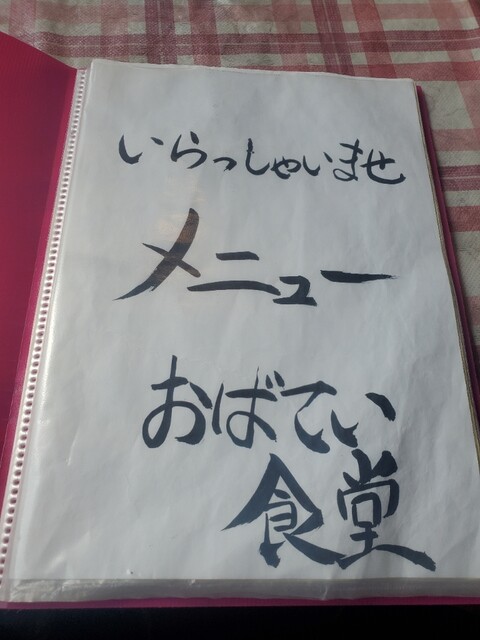 いらっしゃいませ
メニュー
おばてい
食堂